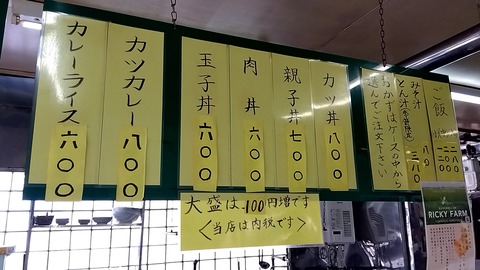 ご飯
みそ汁 八〇
とん汁 一八〇
おかずはケースの中から
選んでご注文下さい
カツ丼 八〇〇
親子丼 七〇〇
肉丼 六〇〇
玉子丼 六〇〇
カツカレー 八〇〇
カレーライス 六〇〇
大盛は100円増です
〈当店は内税です〉
RICKY FARM